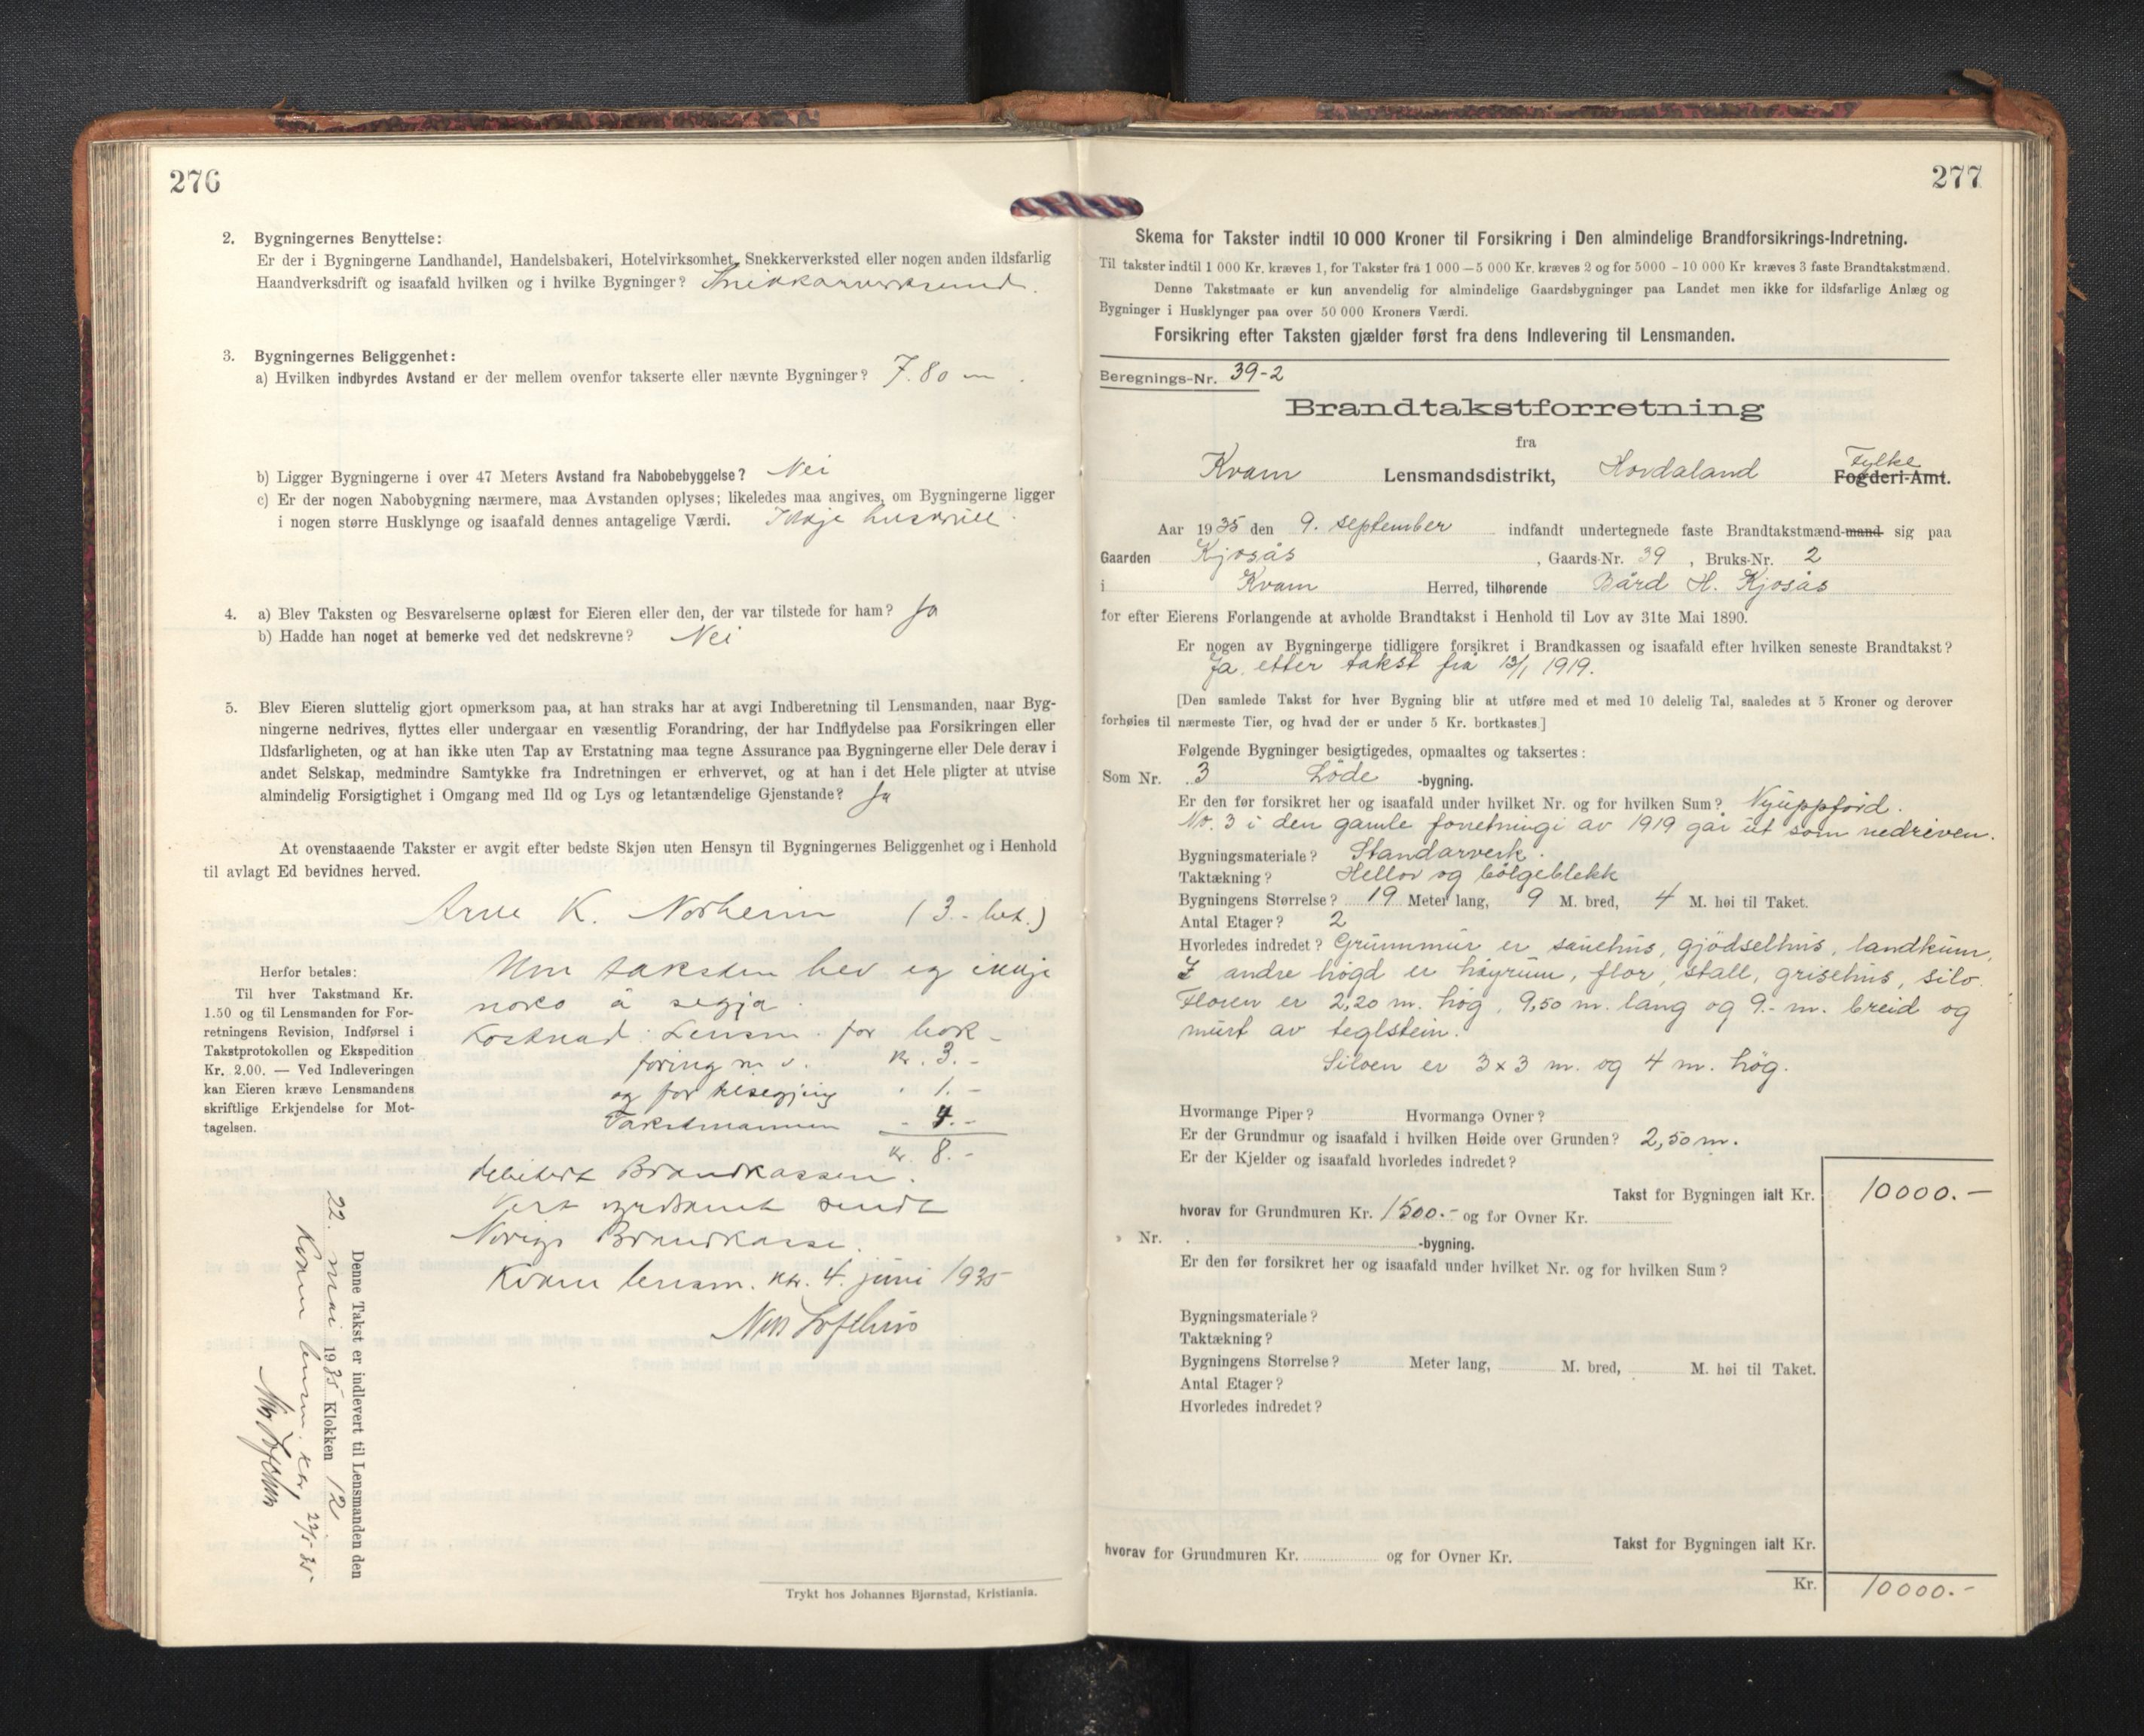 276
2. Bygningernes Benyttelse:
Er der i Bygningerne Landhandel, Handelsbakeri, Hotelvirksomhet, Snekkerverksted eller nogen anden ildsfarlig
Haandverksdrift og isaafald hvilken og i hvilke Bygninger?
3. Bygningernes Beliggenhet:
a) Hvilken indbyrdes Avstand er der mellem ovenfor takserte eller nævnte Bygninger? 7.80 m
b) Ligger Bygningerne i over 47 Meters Avstand fra Nabobebyggelse? Nei
c) Er der nogen Nabobygning nærmere, maa Avstanden oplyses; likeledes maa angives, om Bygningerne ligger
i nogen større Husklynge og isaafald dennes antagelige Værdi. Ikkje
4. a) Blev Taksten og Besvarelserne oplæst for Eieren eller den, der var tilstede for ham? Ja
b) Hadde han noget at bemerke ved det nedskrevne? Nei
5. Blev Eieren sluttelig gjort opmerksom paa, at han straks har at avgi Indberetning til Lensmanden, naar Byg-
ningerne nedrives, flyttes eller undergaar en væsentlig Forandring, der har Indflydelse paa Forsikringen eller
Ildsfarligheten, og at han ikke uten Tap av Erstatning maa tegne Assurance paa Bygningerne eller Dele derav i
andet Selskap, medmindre Samtykke fra Indretningen er erhvervet, og at han i det Hele pligter at utvise
almindelig Forsigtighet i Omgang med Ild og Lys og letantændelige Gjenstande? Ja
At ovenstaaende Takster er avgit efter bedste Skjøn uten Hensyn til Bygningernes Beliggenhet og i Henhold
til avlagt Ed bevidnes herved.
Arne K. Norheim (3.- bet.)
Um taksten hev eg ikkje
noko å segja.
Kostnad: Lensm. for bok-
føring m.v. kr. 3.-
og for utsegjing " 1.-
Takstmannen - 4.-
kr. 8.-
debitert Brandkassen.
Vert sendt
Noregs Brandkasse.
Kvam lensm. ktr. 4. juni 1935
Nils Lofthus
Herfor betales:
Til hver Takstmand Kr.
1.50 og til Lensmanden for For-
retningens Revision, Indførsel i
Takstprotokollen og Ekspedition
Kr. 2.00. — Ved Indleveringen
kan Eieren kræve Lensmandens
skriftlige Erkjendelse for Mot-
tagelsen.
Denne Takst er indlevert til Lensmanden den
22. mai 1935 Klokken 12
Kvam lensm. ktr. 22/5-35
Nils Lofthus
Trykt hos Johannes Bjørnstad, Kristiania.
277
Skema for Takster indtil 10 000 Kroner til Forsikring i Den almindelige Brandforsikrings-Indretning.
Til takster indtil 1 000 Kr. kræves 1, for Takster fra 1 000—5 000 Kr. kræves 2 og for 5000 - 10 000 Kr kræves 3 faste Brandtakstmænd.
Denne Takstmaate er kun anvendelig for almindelige Gaardsbygninger paa Landet men ikke for ildsfarlige Anlæg og
Bygninger i Husklynger paa over 50 000 Kroners Værdi.
Forsikring efter Taksten gjælder først fra dens Indlevering til Lensmanden.
Beregnings-Nr. 39-2
Brandtakstforretning
fra
Kvam Lensmandsdistrikt, Hordaland Fylke Fogderi-Amt.
Aar 1935 den 9. september indfandt undertegnede faste Brandtakstmænd-mand sig paa
Gaarden Kjosås, Gaards-Nr. 39, Bruks-Nr. 2
i Kvam Herred, tilhørende Bård H. Kjosås
for efter Eierens Forlangende at avholde Brandtakst i Henhold til Lov av 31te Mai 1890.
Er nogen av Bygningerne tidligere forsikret i Brandkassen og isaafald efter hvilken seneste Brandtakst?
Ja etter takst frå 13/1 1919.
[Den samlede Takst for hver Bygning blir at utføre med et med 10 delelig Tal, saaledes at 5 Kroner og derover
forhøies til nærmeste Tier, og hvad der er under 5 Kr. bortkastes.]
Følgende Bygninger besigtigedes, opmaaltes og taksertes:
Som Nr. 3 Löde -bygning.
Er den før forsikret her og isaafald under hvilket Nr. og for hvilken Sum? Nyuppförd.
Nr. 3 i den gamle forretningi av 1919 går ut som nedriven.
Bygningsmateriale? Standarverk.
Taktækning? Hellor og bölgeblekk
Bygningens Størrelse? 19 Meter lang, 9 M. bred, 4 M. høi til Taket.
Antal Etager? 2
Hvorledes indredet? Grunnmur er sauehus, gjödselhus, landkum,
I andre högd er höyrum, flor, stall, grisehus, silo.
Floren er 2,20 m. hög, 9,50 m. lang og 9.- m. breid og
murt av teglstein.
Siloen er 3 x 3 m. og 4 m. hög.
Hvormange Piper? Hvormange Ovner?
Er der Grundmur og isaafald i hvilken Høide over Grunden? 2,50 m.
Er der Kjelder og isaafald hvorledes indredet?
Takst for Bygningen ialt Kr. 10000.—
hvorav for Grundmuren Kr. 1500.- og for Ovner Kr.
" Nr. -bygning.
Er den før forsikret her og isaafald under hvilket Nr. og for hvilken Sum?
Bygningsmateriale?
Taktækning?
Bygningens Størrelse? Meter lang, M. bred, M. høi til Taket.
Antal Etager?
Hvorledes indredet?
Takst for Bygningen ialt Kr.
hvorav for Grundmuren Kr. og for Ovner Kr.
Kr. 10000.-